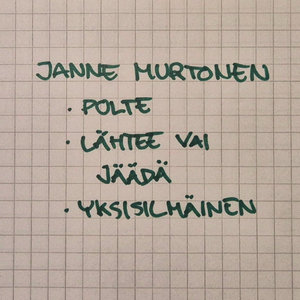 JANNE MURTONEN
· POLTE
· LÄHTEE VAI
JÄÄDÄ
· YKSISILMÄINEN